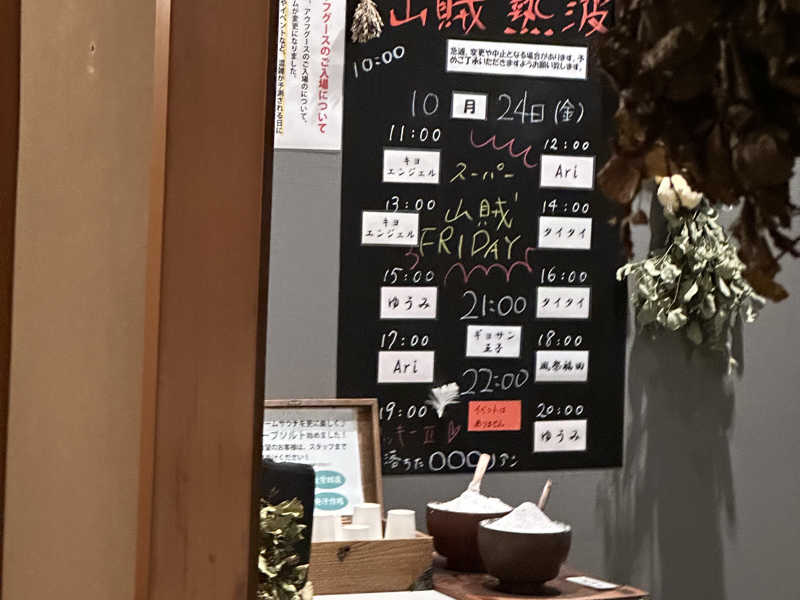 山賊 熱波
10:00
急遽、変更や中止となる場合があります。予
めご了承いただきますようお願い致します。
10 月 24日(金)
11:00
キヨ
エンジェル
12:00
Ari
スーパー
山賊
FRIDAY
13:00
キヨ
エンジェル
14:00
タイタイ
15:00
ゆうみ
16:00
タイタイ
21:00
ギョサン
王子
17:00
Ari
18:00
風祭福田
22:00
イベントは
ありません
19:00
20:00
ゆうみ
落ちた〇〇〇
フグースのご入場について
、アウフグースのご入場のについて、
ムが変更になりました。
やイベントなど、混雑が予測される日に
ームサウナを更に楽しく♪
ープソルト始めました！
望のお客様は、スタッフまで
ください！